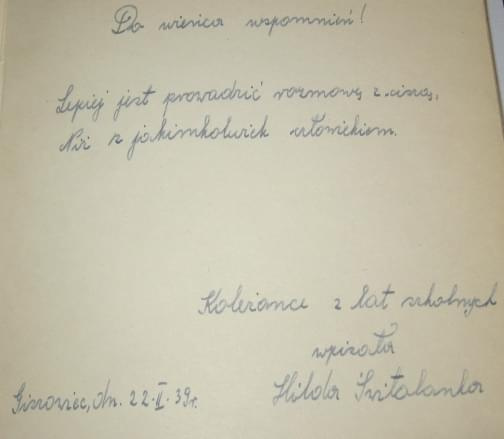 Do wieńca wspomnień!
Lepiej jest prowadzić rozmowę z ciszą,
Niż z jakimkolwiek człowiekiem.
Koleżance z lat szkolnych
wpisała
Hilda Świtalanka
Giszowiec, dn. 22.II.39r.